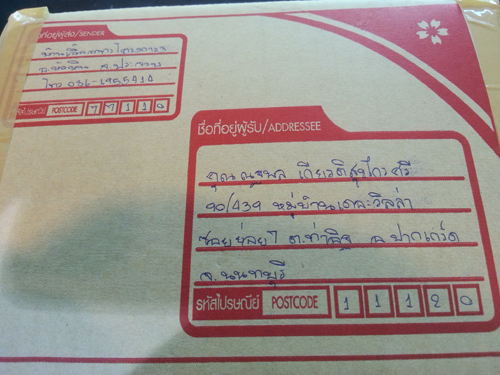 ชื่อที่อยู่ผู้ส่ง/SENDER
อ.หัวหิน จ.ประจวบฯ
โทร 036-1955910
รหัสไปรษณีย์ POSTCODE 77110
ชื่อที่อยู่ผู้รับ/ADDRESSEE
คุณ ณฐพล เกียรติสุขไกรศรี
90/439 หมู่บ้านเดอะวิลล่า
ซอยย่อย 7 ต.ท่าอิฐ อ.ปากเกร็ด
จ.นนทบุรี
รหัสไปรษณีย์ POSTCODE 11120